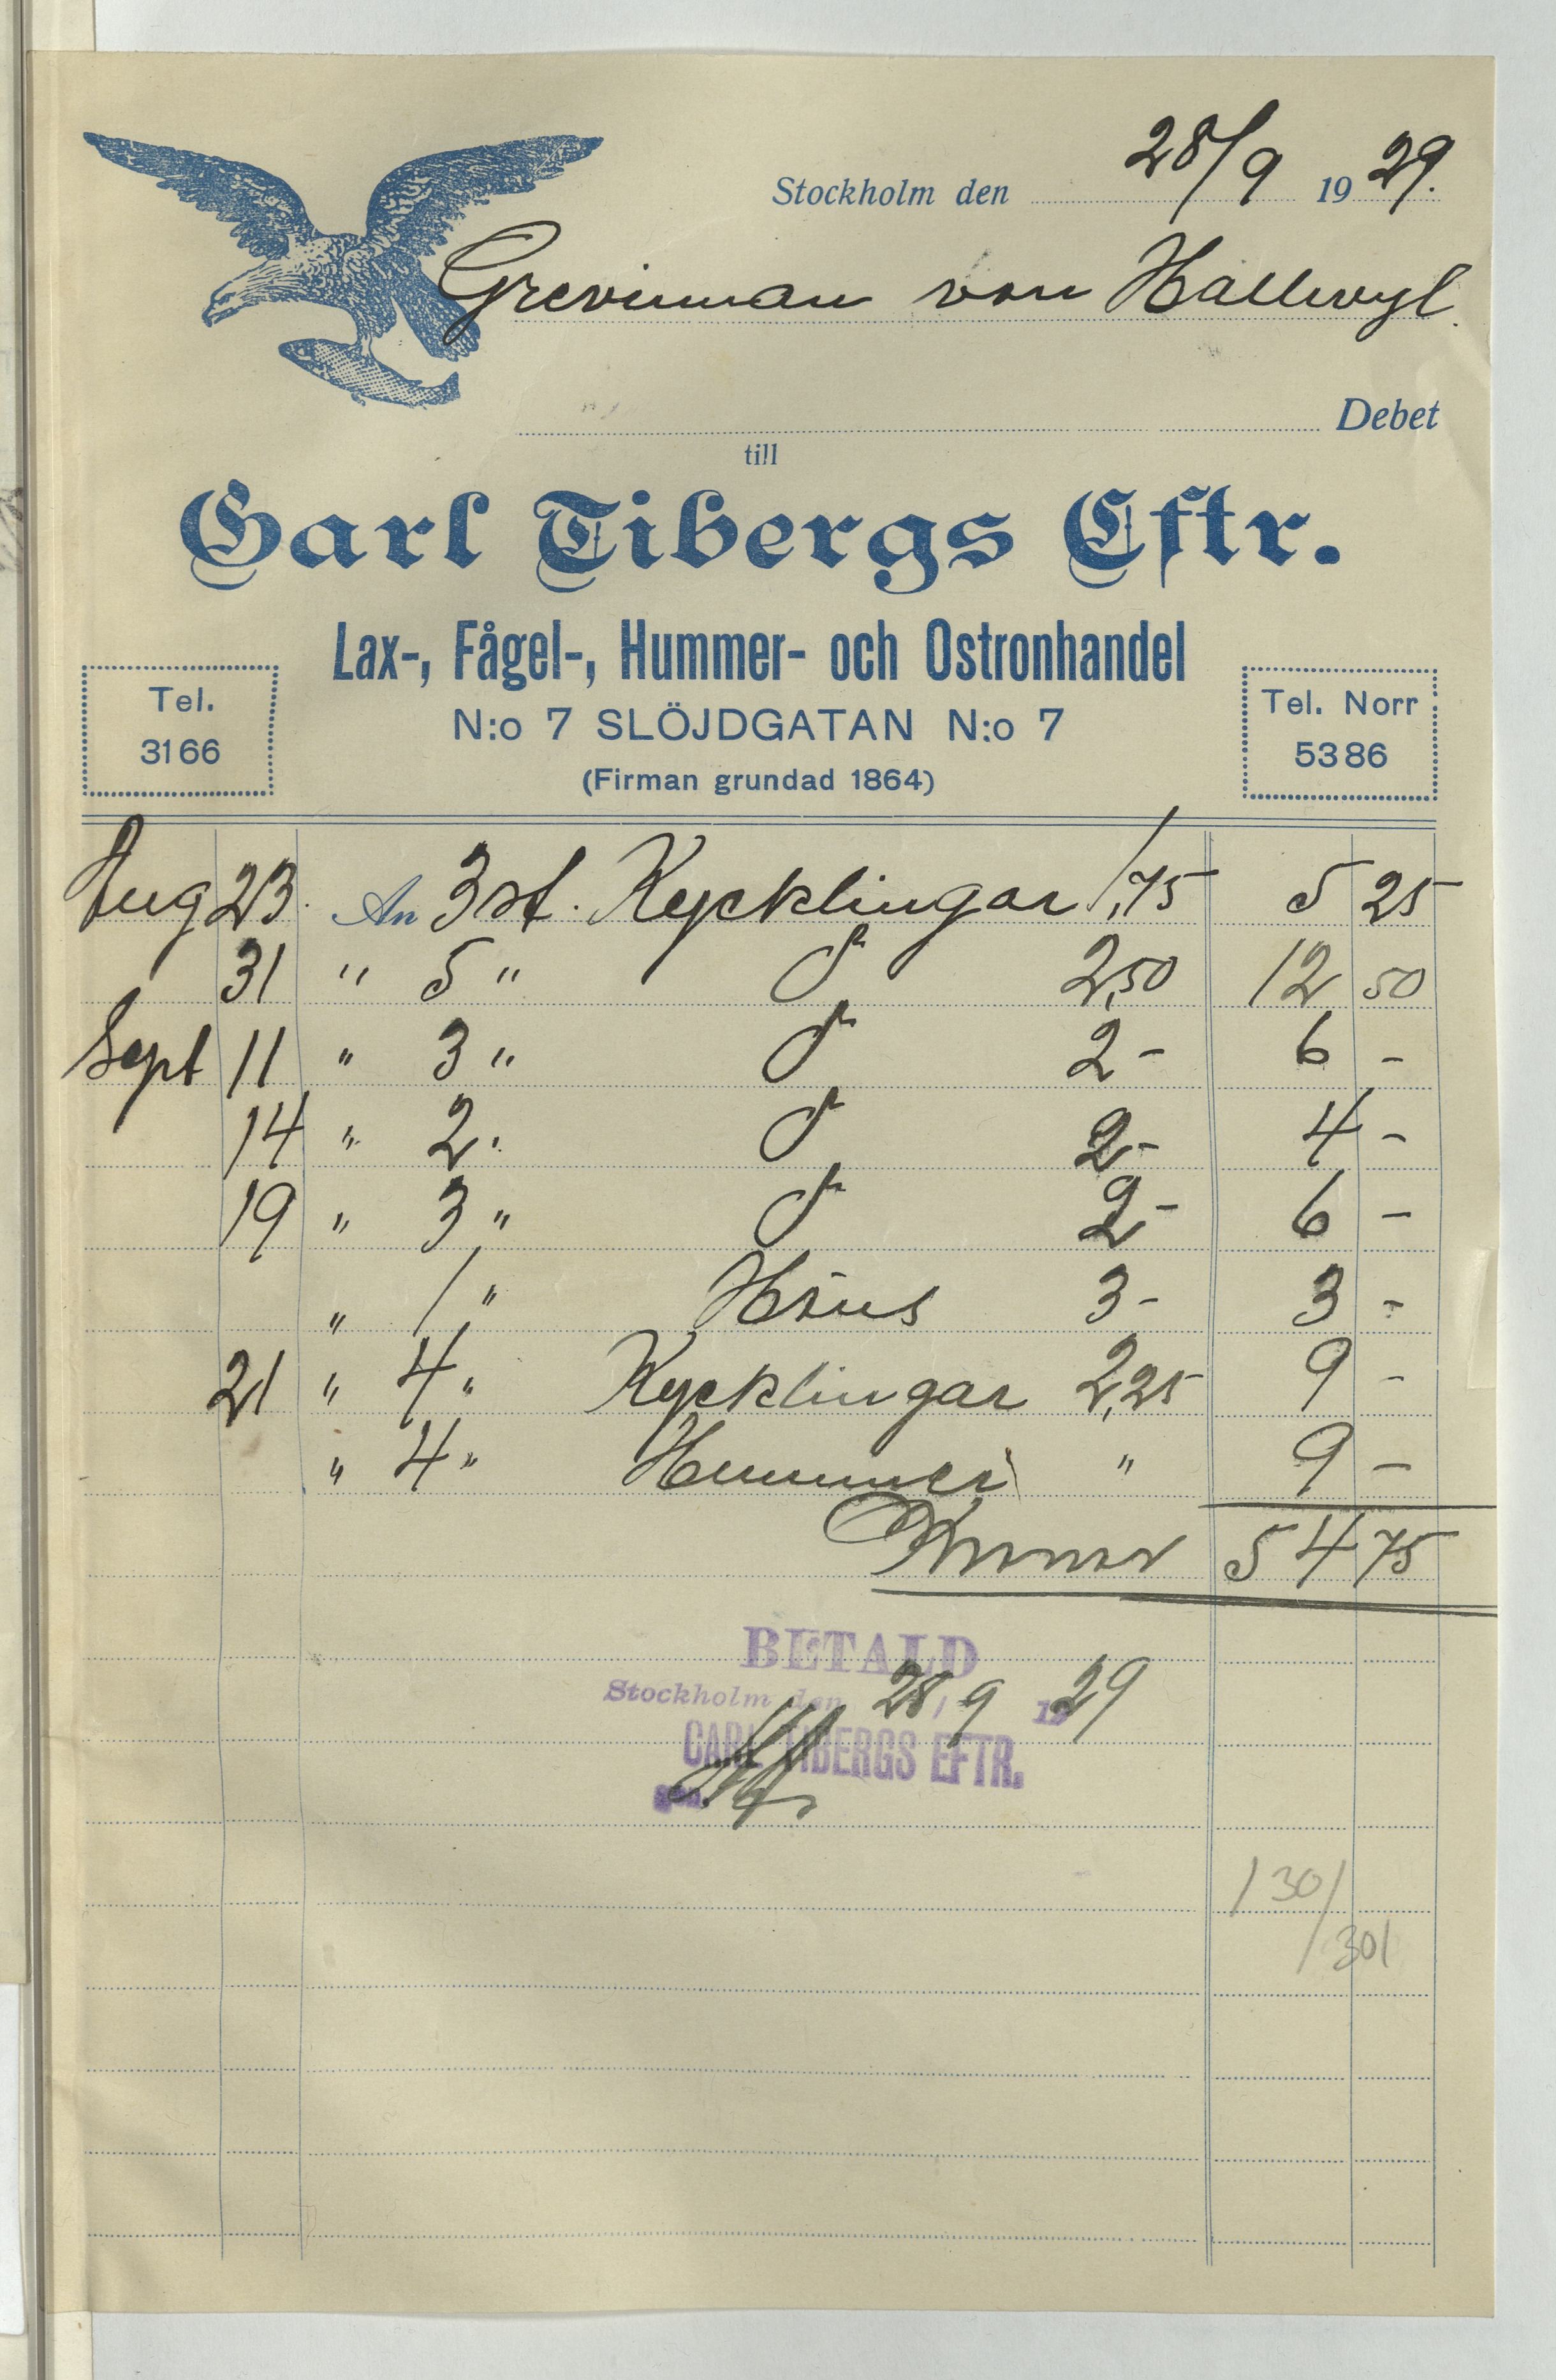 Stockholm den 28/9 1929.
Grevinnan von Hallwyl.
Debet
till
Carl Tibergs Eftr.
Lax-, Fågel-, Hummer- och Ostronhandel
N:o 7 SLÖJDGATAN N:o 7
(Firman grundad 1864)
Tel.
3166
Tel. Norr
5386
Aug 23. An 3 st. Kycklingar 1,75 5 25
31 " 5 " d:o 2,50 12 50
Sept 11 " 3 " d:o 2- 6 -
14 " 2 " d:o 2- 4 -
19 " 3 " d:o 2- 6 -
" 1 " Höns 3- 3 -
21 " 4 " Kycklingar 2,25 9 -
" 4 " Hummer " 9 -
Kronor 54 75
BETALD
Stockholm den 28/9 1929
CARL TIBERGS EFTR.
130/
/301